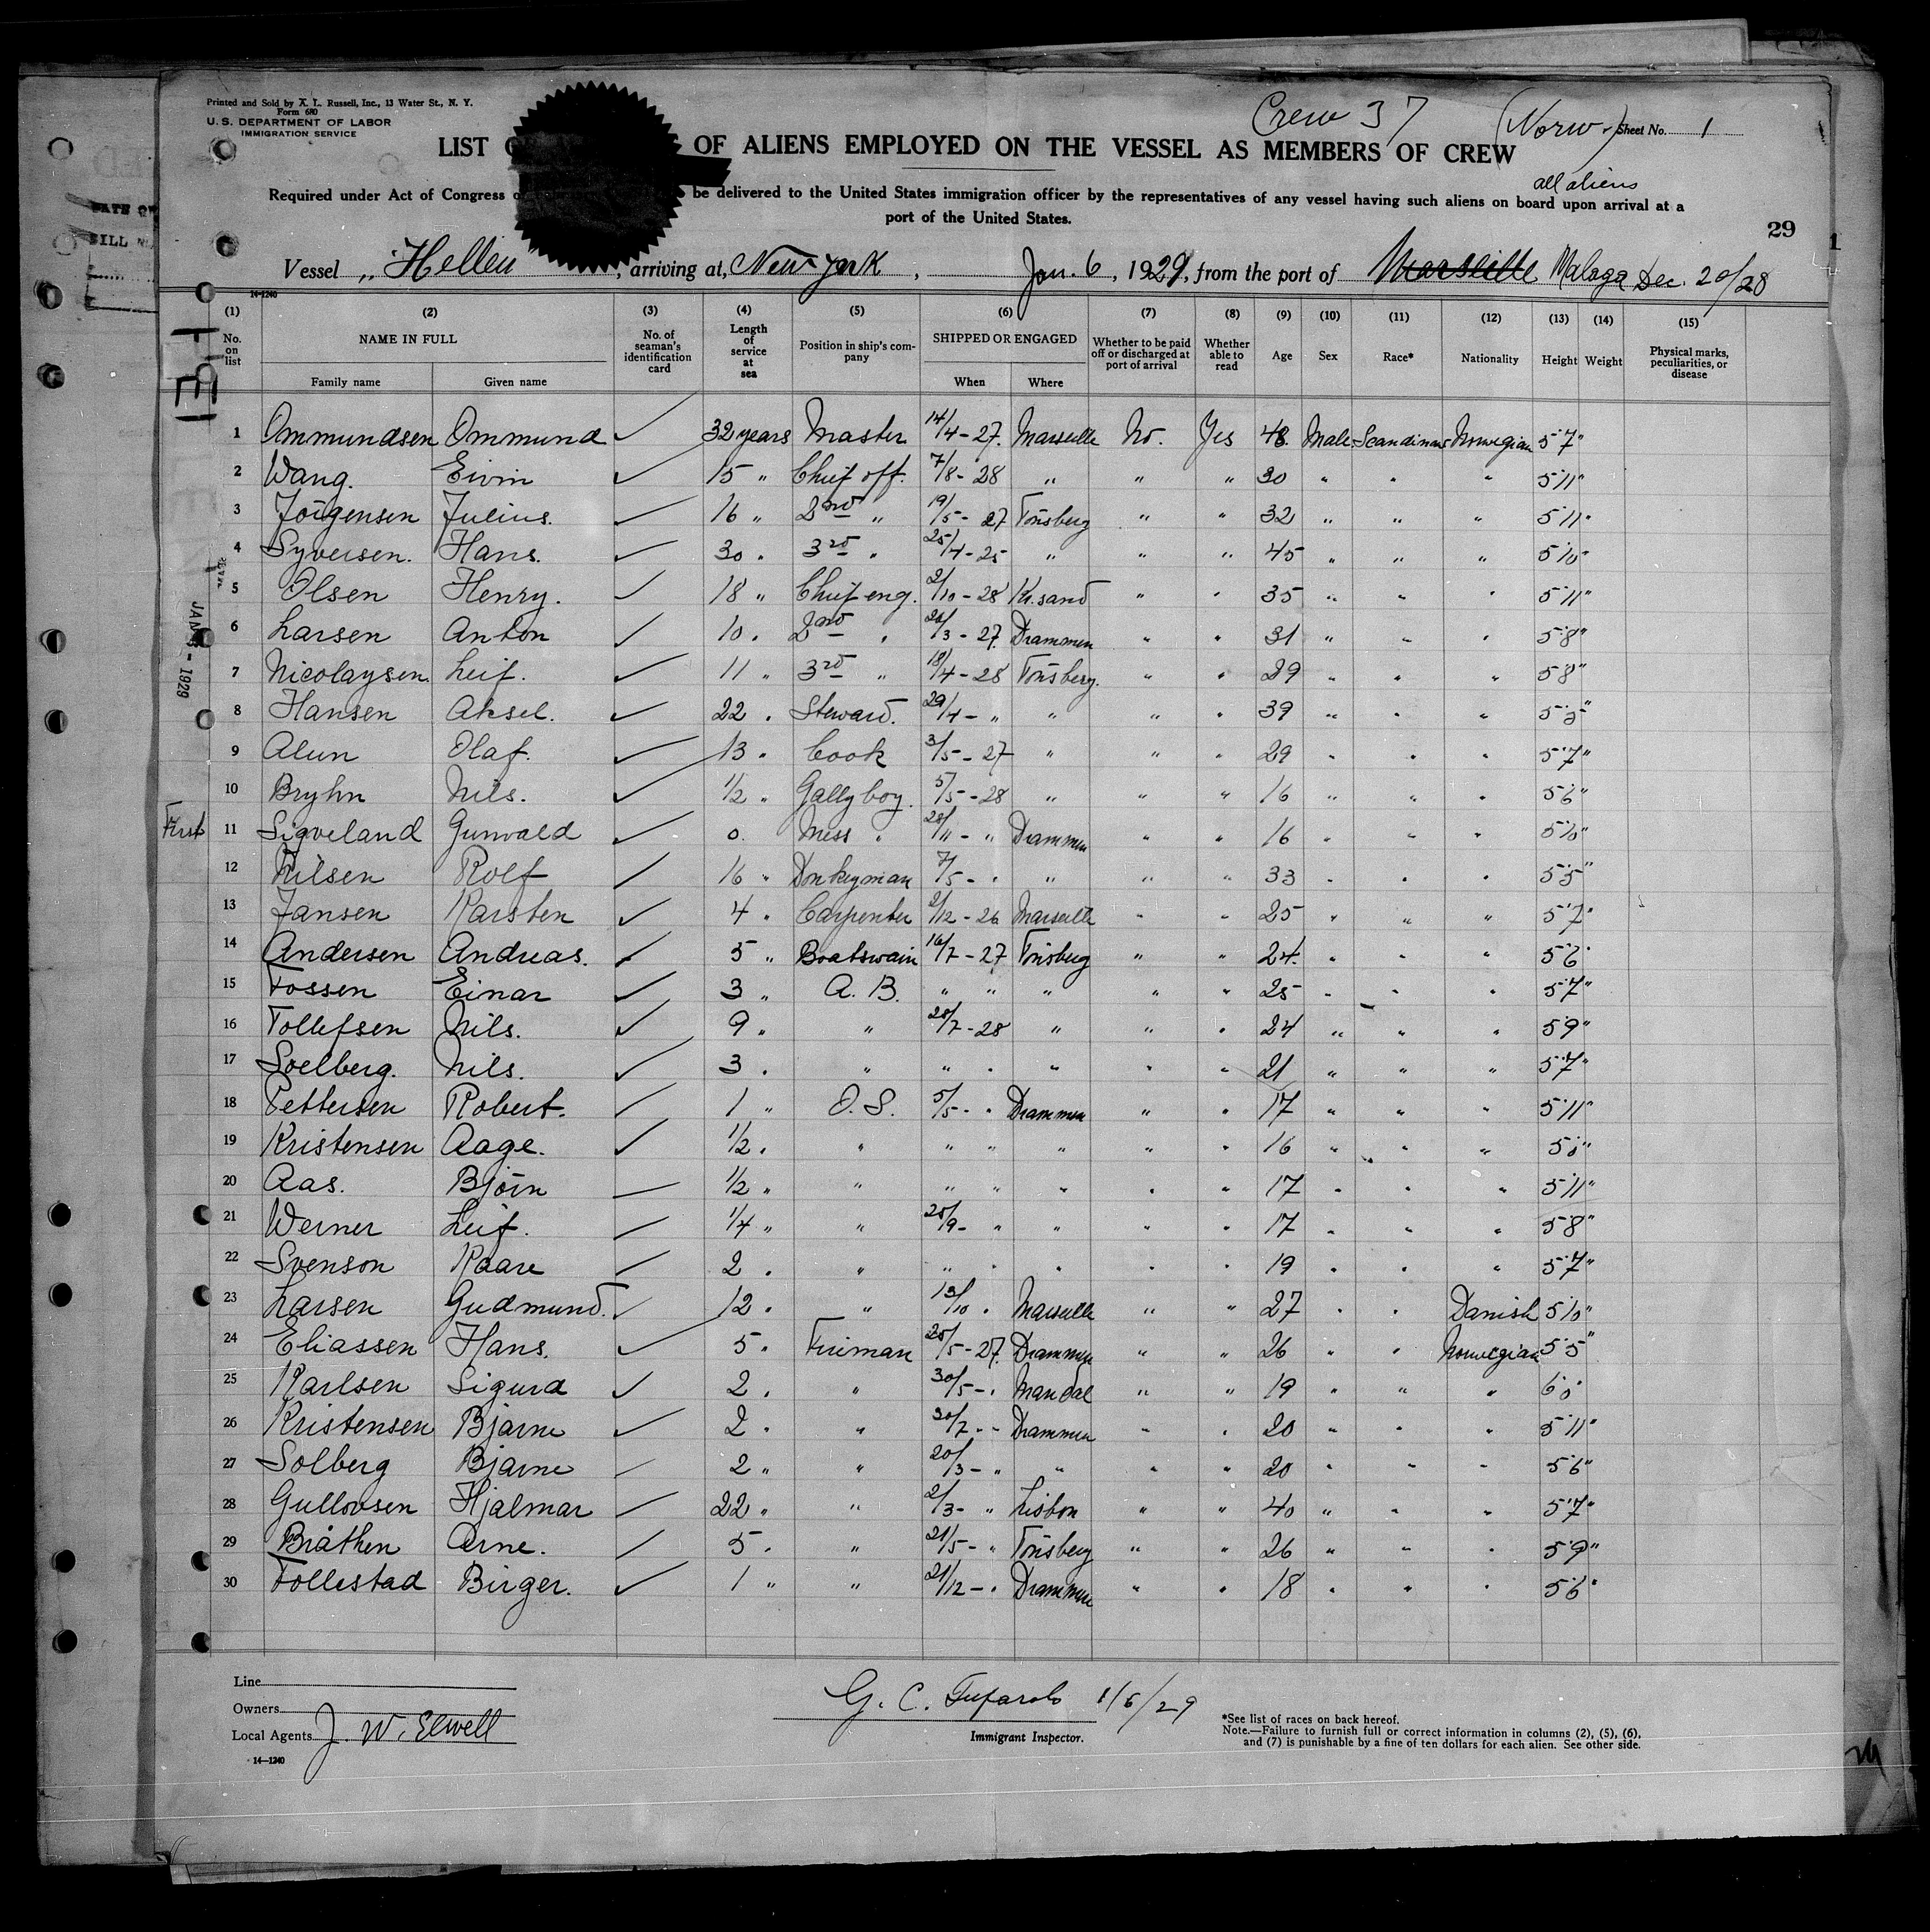 Printed and Sold by A. L. Russell, Inc., 13 Water St., N. Y.
Form 680
U. S. DEPARTMENT OF LABOR
IMMIGRATION SERVICE
Crew 37 (Norw.) Sheet No. 1
LIST OF ALIENS EMPLOYED ON THE VESSEL AS MEMBERS OF CREW
all aliens
Required under Act of Congress be delivered to the United States immigration officer by the representatives of any vessel having such aliens on board upon arrival at a
port of the United States.
29
Vessel „Hellen", arriving at, New York, Jan. 6, 1929, from the port of Marseille Malaga Dec. 20/28
14-1240
(1) (2) (3) (4) (5) (6) (7) (8) (9) (10) (11) (12) (13) (14) (15)
No. on list NAME IN FULL Family name Given name No. of seaman's identification card Length of service at sea Position in ship's company SHIPPED OR ENGAGED When Where Whether to be paid off or discharged at port of arrival Whether able to read Age Sex Race* Nationality Height Weight Physical marks, peculiarities, or disease
1 Ommundsen Ommund ✓ 32 years Master 14/4-27. Marseille No. Yes 48 Male Scandinav Norwegian 5'7"
2 Wang. Eivin ✓ 15 " Chief off. 7/8-28 " " " 30 " " " 5'11"
3 Jörgensen Julius. ✓ 16 " 2nd " 19/5-27 Tönsberg " " 32 " " " 5'11"
4 Syversen. Hans. ✓ 30 " 3rd " 25/4-25 " " " 45 " " " 5'10"
5 Olsen Henry. ✓ 18 " Chief eng. 2/10-28 Kr.sand " " 35 " " " 5'11"
6 Larsen Anton ✓ 10 " 2nd " 20/3-27. Drammen " " 31 " " " 5'8"
7 Nicolaysen. Leif. ✓ 11 " 3rd " 18/4-28 Tönsberg. " " 29 " " " 5'8"
8 Hansen Aksel. ✓ 22 " Steward. 29/4- " " " " 39 " " "
9 Alun Olaf. ✓ 13 " Cook 3/5-27 " " " 29 " " " 5'7"
10 Bryhn Nils. ✓ 1/2 " Gally boy. 5/5-28 " " " 16 " " " 5'6"
First 11 Sigveland Gunvald ✓ 0. Mess " 28/11- " Drammen " " 16 " " " 5'10"
12 Nilsen Rolf ✓ 16 " Donkeyman 7/5- " " " " 33 " " " 5'5"
13 Jansen Karsten ✓ 4 " Carpenter 2/12-26 Marseille " " 25 " " " 5'7"
14 Andersen Andreas. ✓ 5 " Boatswain 16/7-27 Tönsberg " " 24. " " " 5'6"
15 Fossen Einar ✓ 3 " A. B. " " " " " 25 " " " 5'7"
16 Tollefsen Nils. ✓ 9 " " 28/7-28 " " " 24 " " " 5'9"
17 Soelberg. Nils. ✓ 3 " " " " " " " 21 " " " 5'7"
18 Pettersen Robert. ✓ 1 " O. S. 5/5- " Drammen " " 17 " " " 5'11"
19 Kristensen Aage. ✓ 1/2 " " " " " " " 16 " " "
20 Aas. Björn 1/2 " " " " " " " 17 " " " 5'11"
21 Werner Leif. 1/4 " " 25/9- " " " " 17 " " " 5'8"
22 Svenson Kaare 2 " " " " " " " 19 " " " 5'7"
23 Larsen Gudmund. ✓ 12 " " 13/10 " Marseille " " 27 " " Danish 5'10"
24 Eliassen Hans. ✓ 5 " Fireman 25/5-27. Drammen " " 26 " " Norwegian 5'5"
25 Karlsen Sigurd ✓ 2 " " 30/5- " Mandal " " 19 " " " 6'0"
26 Kristensen Bjarne ✓ 2 " " 30/7- " Drammen " " 20 " " " 5'11"
27 Solberg Bjarne 2 " " 20/3- " " " " 20 " " " 5'6"
28 Gullovsen Hjalmar 22 " " 2/3- " Lisbon " " 40 " " " 5'7"
29 Bråthen Arne. 5 " " 21/5- " Tönsberg " " 26 " " " 5'9"
30 Follestad Birger. ✓ 1 " " 21/12- " Drammen " " 18 " " " 5'6"
Line
Owners
Local Agents J. W. Elwell
14-1240
G. C. 1/6/29
Immigrant Inspector.
*See list of races on back hereof.
Note.—Failure to furnish full or correct information in columns (2), (5), (6),
and (7) is punishable by a fine of ten dollars for each alien. See other side.